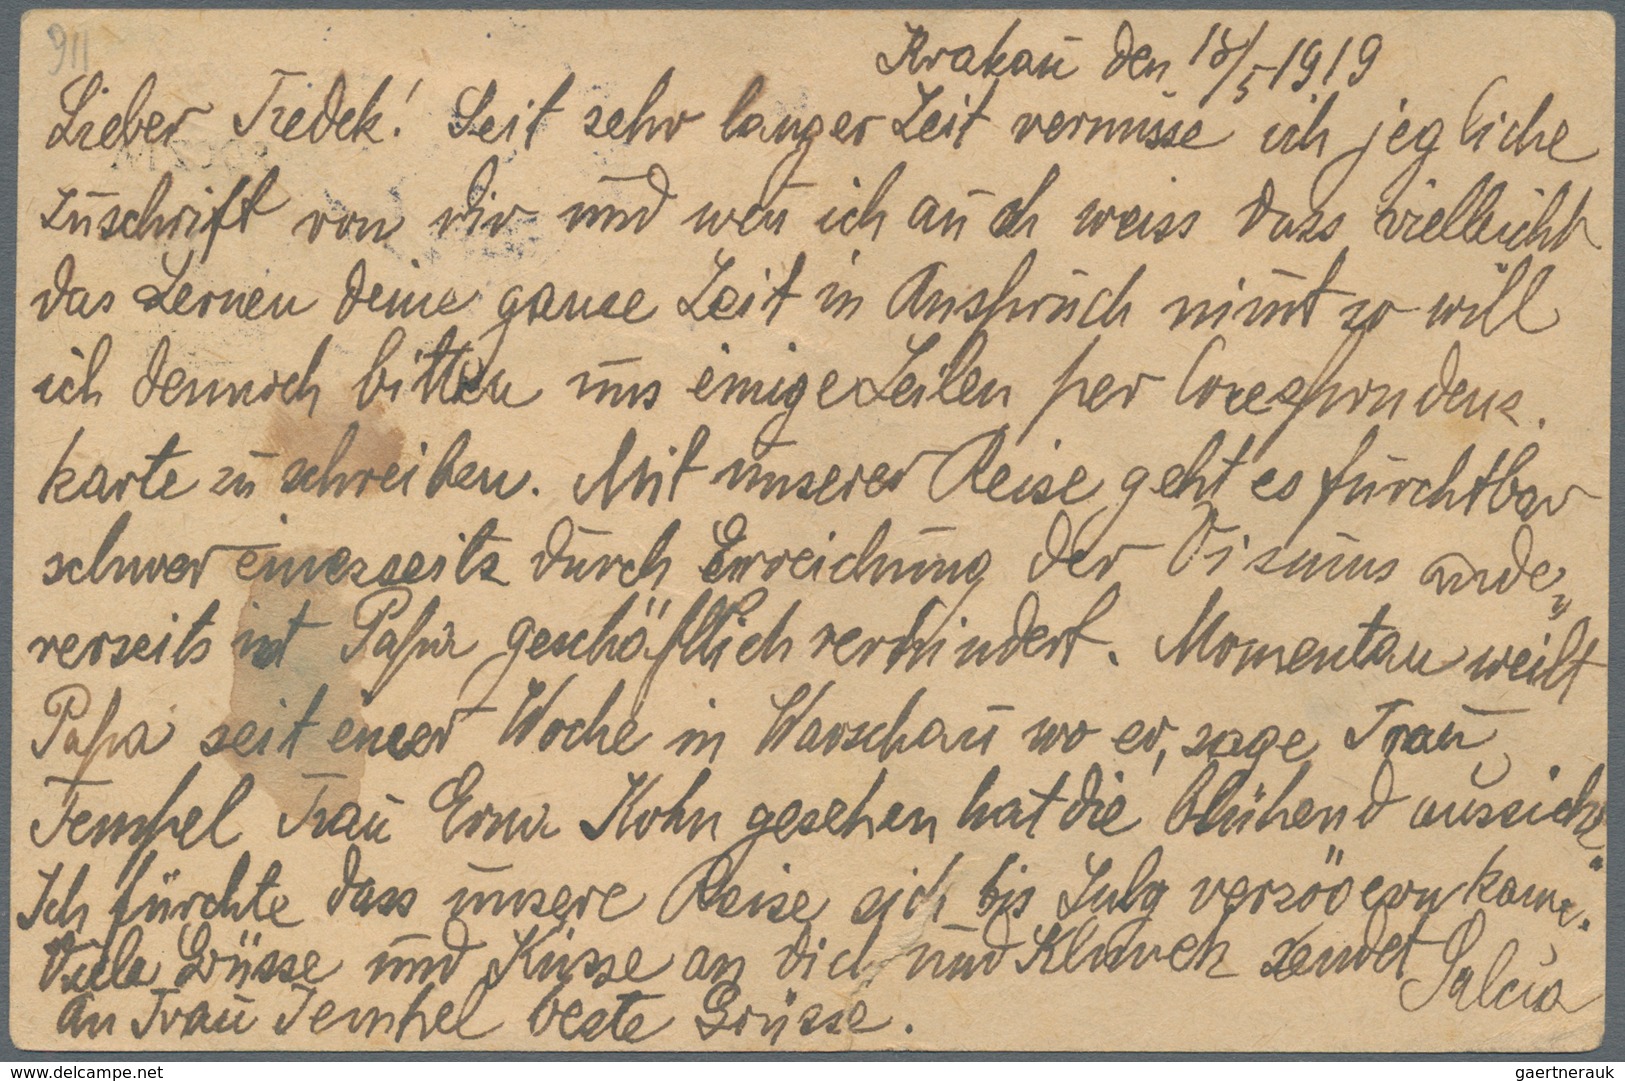 911
Krakau den 18/5 1919
Lieber Fredek! Seit sehr langer Zeit vermisse ich jegliche
Zuschrift von dir und wen ich auch weiss dass vielleicht
das Lernen deine ganze Zeit in Anspruch nimt so will
ich dennoch bitten uns einige Zeilen per Corespondenz.
karte zu schreiben. Mit unserer Reise geht es furchtbar
schwer einerseits durch Erreichung der Visums ande„
rerseits ist Papa geschäftlich verhindert. Momentan weilt
Papa seit einer Woche in Warschau wo er, sage Frau
Tempel Frau Erna Kohn gesehen hat die blühend aussieht.
Ich fürchte dass unsere Reise sich bis July verzögern kann.
Viele Grüsse und Küsse an dich und sendet Salcia
an Frau Tempel beste Grüsse.
www.delcampe.net
gaertnerauk